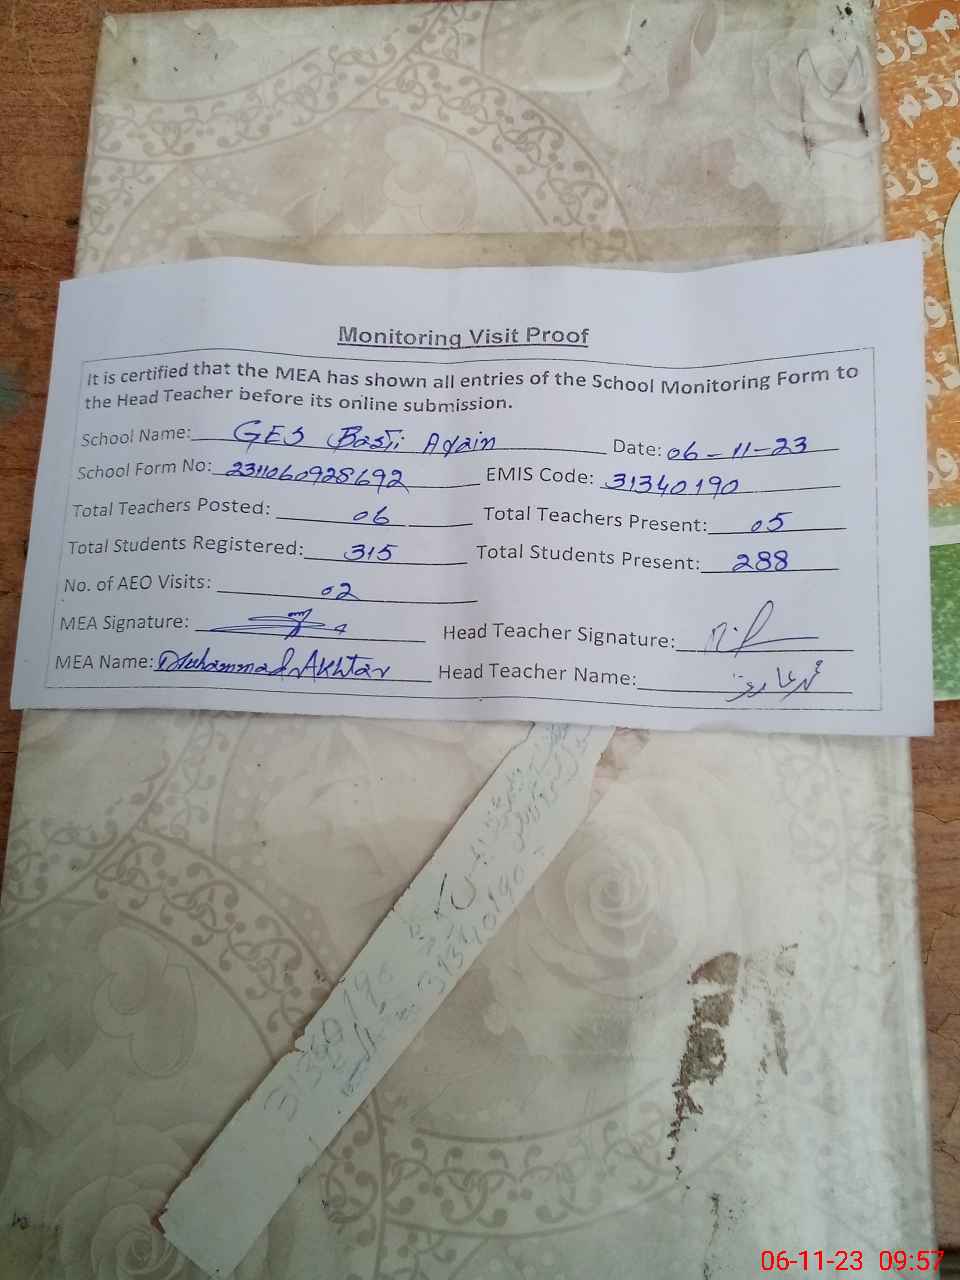 Monitoring Visit Proof
It is certified that the MEA has shown all entries of the School Monitoring Form to
the Head Teacher before its online submission.
School Name: GES Basti Arain Date: 06-11-23
School Form No: 2311060928692 EMIS Code: 31340190
Total Teachers Posted: 06 Total Teachers Present: 05
Total Students Registered: 315 Total Students Present: 288
No. of AEO Visits: 02
MEA Signature: Head Teacher Signature:
MEA Name: Muhammad Akhtar Head Teacher Name:
31340190
31340190
06-11-23 09:57